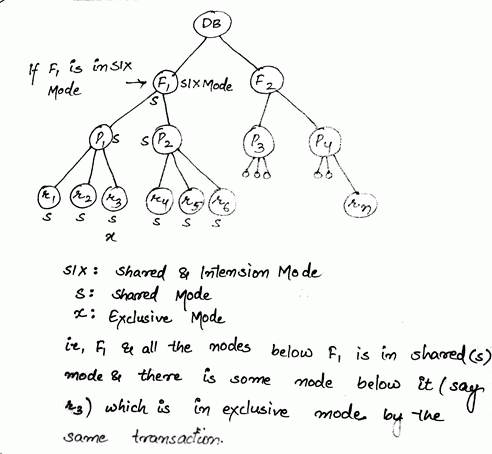 DB
If F1 is in SIX
Mode
F1 SIX Mode
S
F2
P1 S
S P2
P3
P4
r1 r2 r3 r4 r5 r6
rn
S S S S S S
x
SIX : Shared & Intension Mode
S : Shared Mode
x : Exclusive Mode
ie, F1 & all the nodes below F1 is in shared(s)
mode & there is some node below it (say
r3) which is in exclusive mode by the
same transaction.